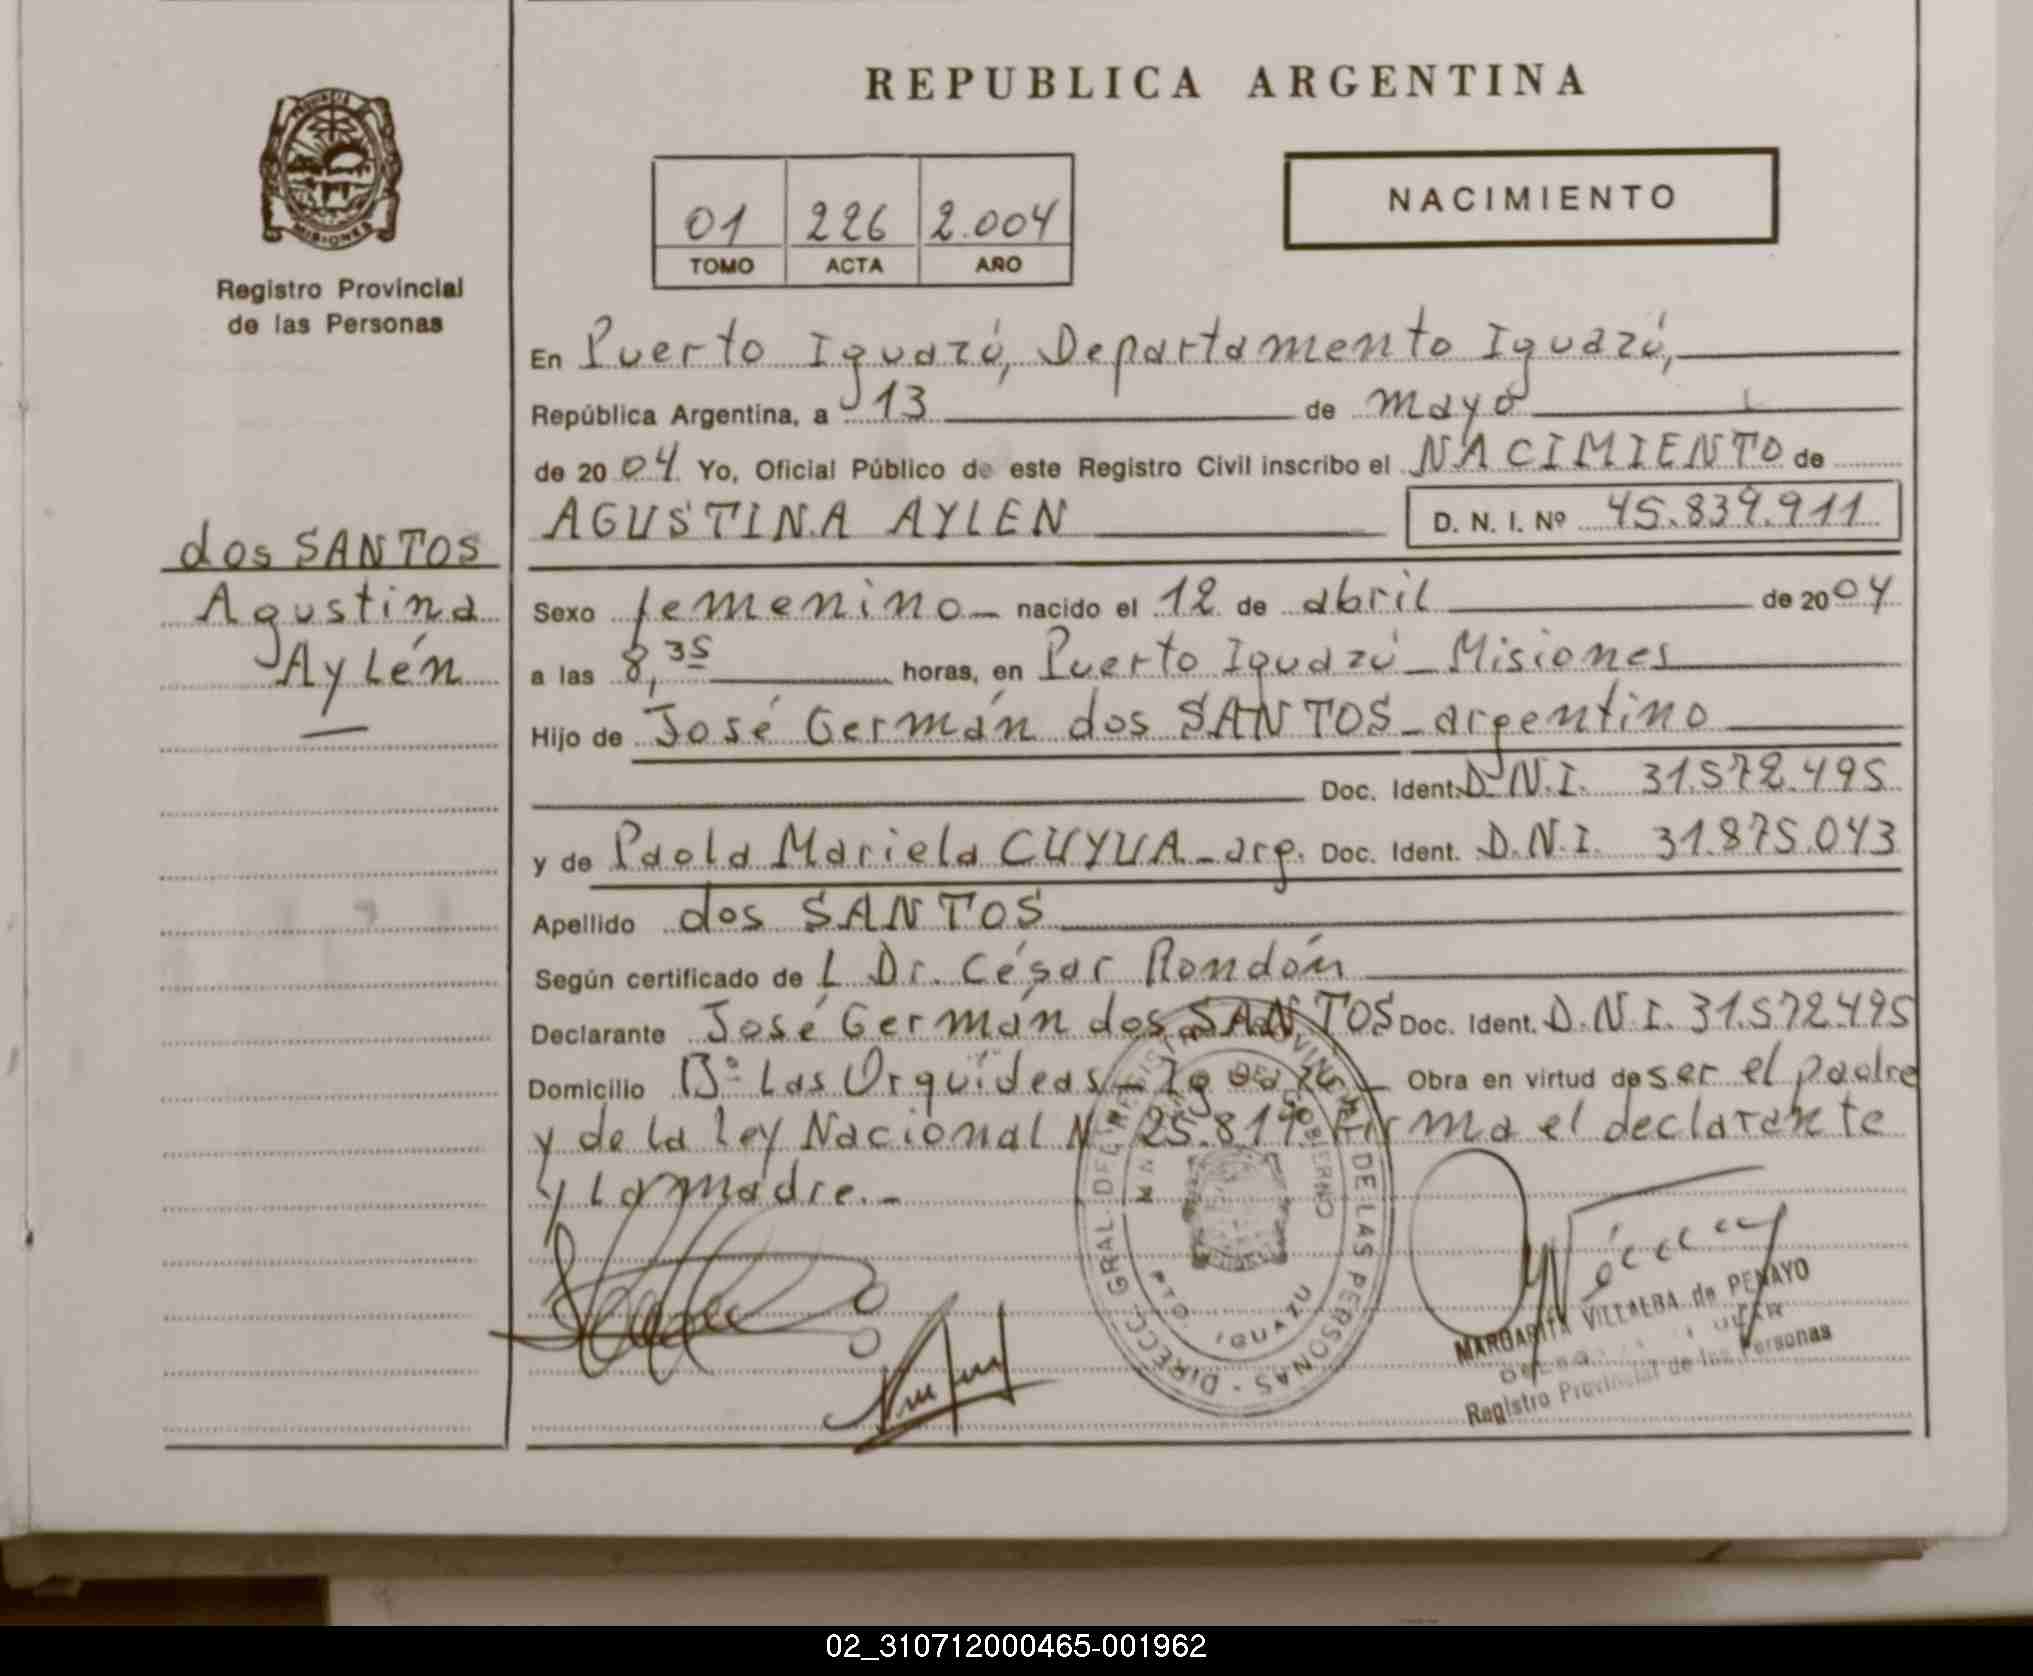 REPUBLICA ARGENTINA
NACIMIENTO
01 226 2.004
TOMO ACTA AÑO
MISIONES
Registro Provincial
de las Personas
En Puerto Iguazú, Departamento Iguazú,
República Argentina, a 13 de mayo
de 2004 Yo, Oficial Público de este Registro Civil inscribo el NACIMIENTO de
AGUSTINA AYLEN D. N. I. Nº 45.839.911
dos SANTOS
Agustina
Aylén
Sexo femenino nacido el 12 de abril de 2004
a las 8,35 horas, en Puerto Iguazú - Misiones
Hijo de José Germán dos SANTOS - argentino
Doc. Ident. D.N.I. 31.572.495
y de Paola Mariela CUYUA - arg. Doc. Ident. D.N.I. 31.875.043
Apellido dos SANTOS
Según certificado de L Dr. César Rondón
Declarante José Germán dos SANTOS Doc. Ident. D.N.I. 31.572.495
Domicilio Bº Las Orquídeas - Iguazú - Obra en virtud de ser el padre
y de la Ley Nacional N 25.819. Firma el declarante
y la madre.-
DIRECC. GRAL. DEL REGISTRO PROVINCIAL DE LAS PERSONAS
GOBIERNO
PTO. IGUAZU
MARGARITA VILLALBA de PENAYO
Registro Provincial de las Personas
02_310712000465-001962